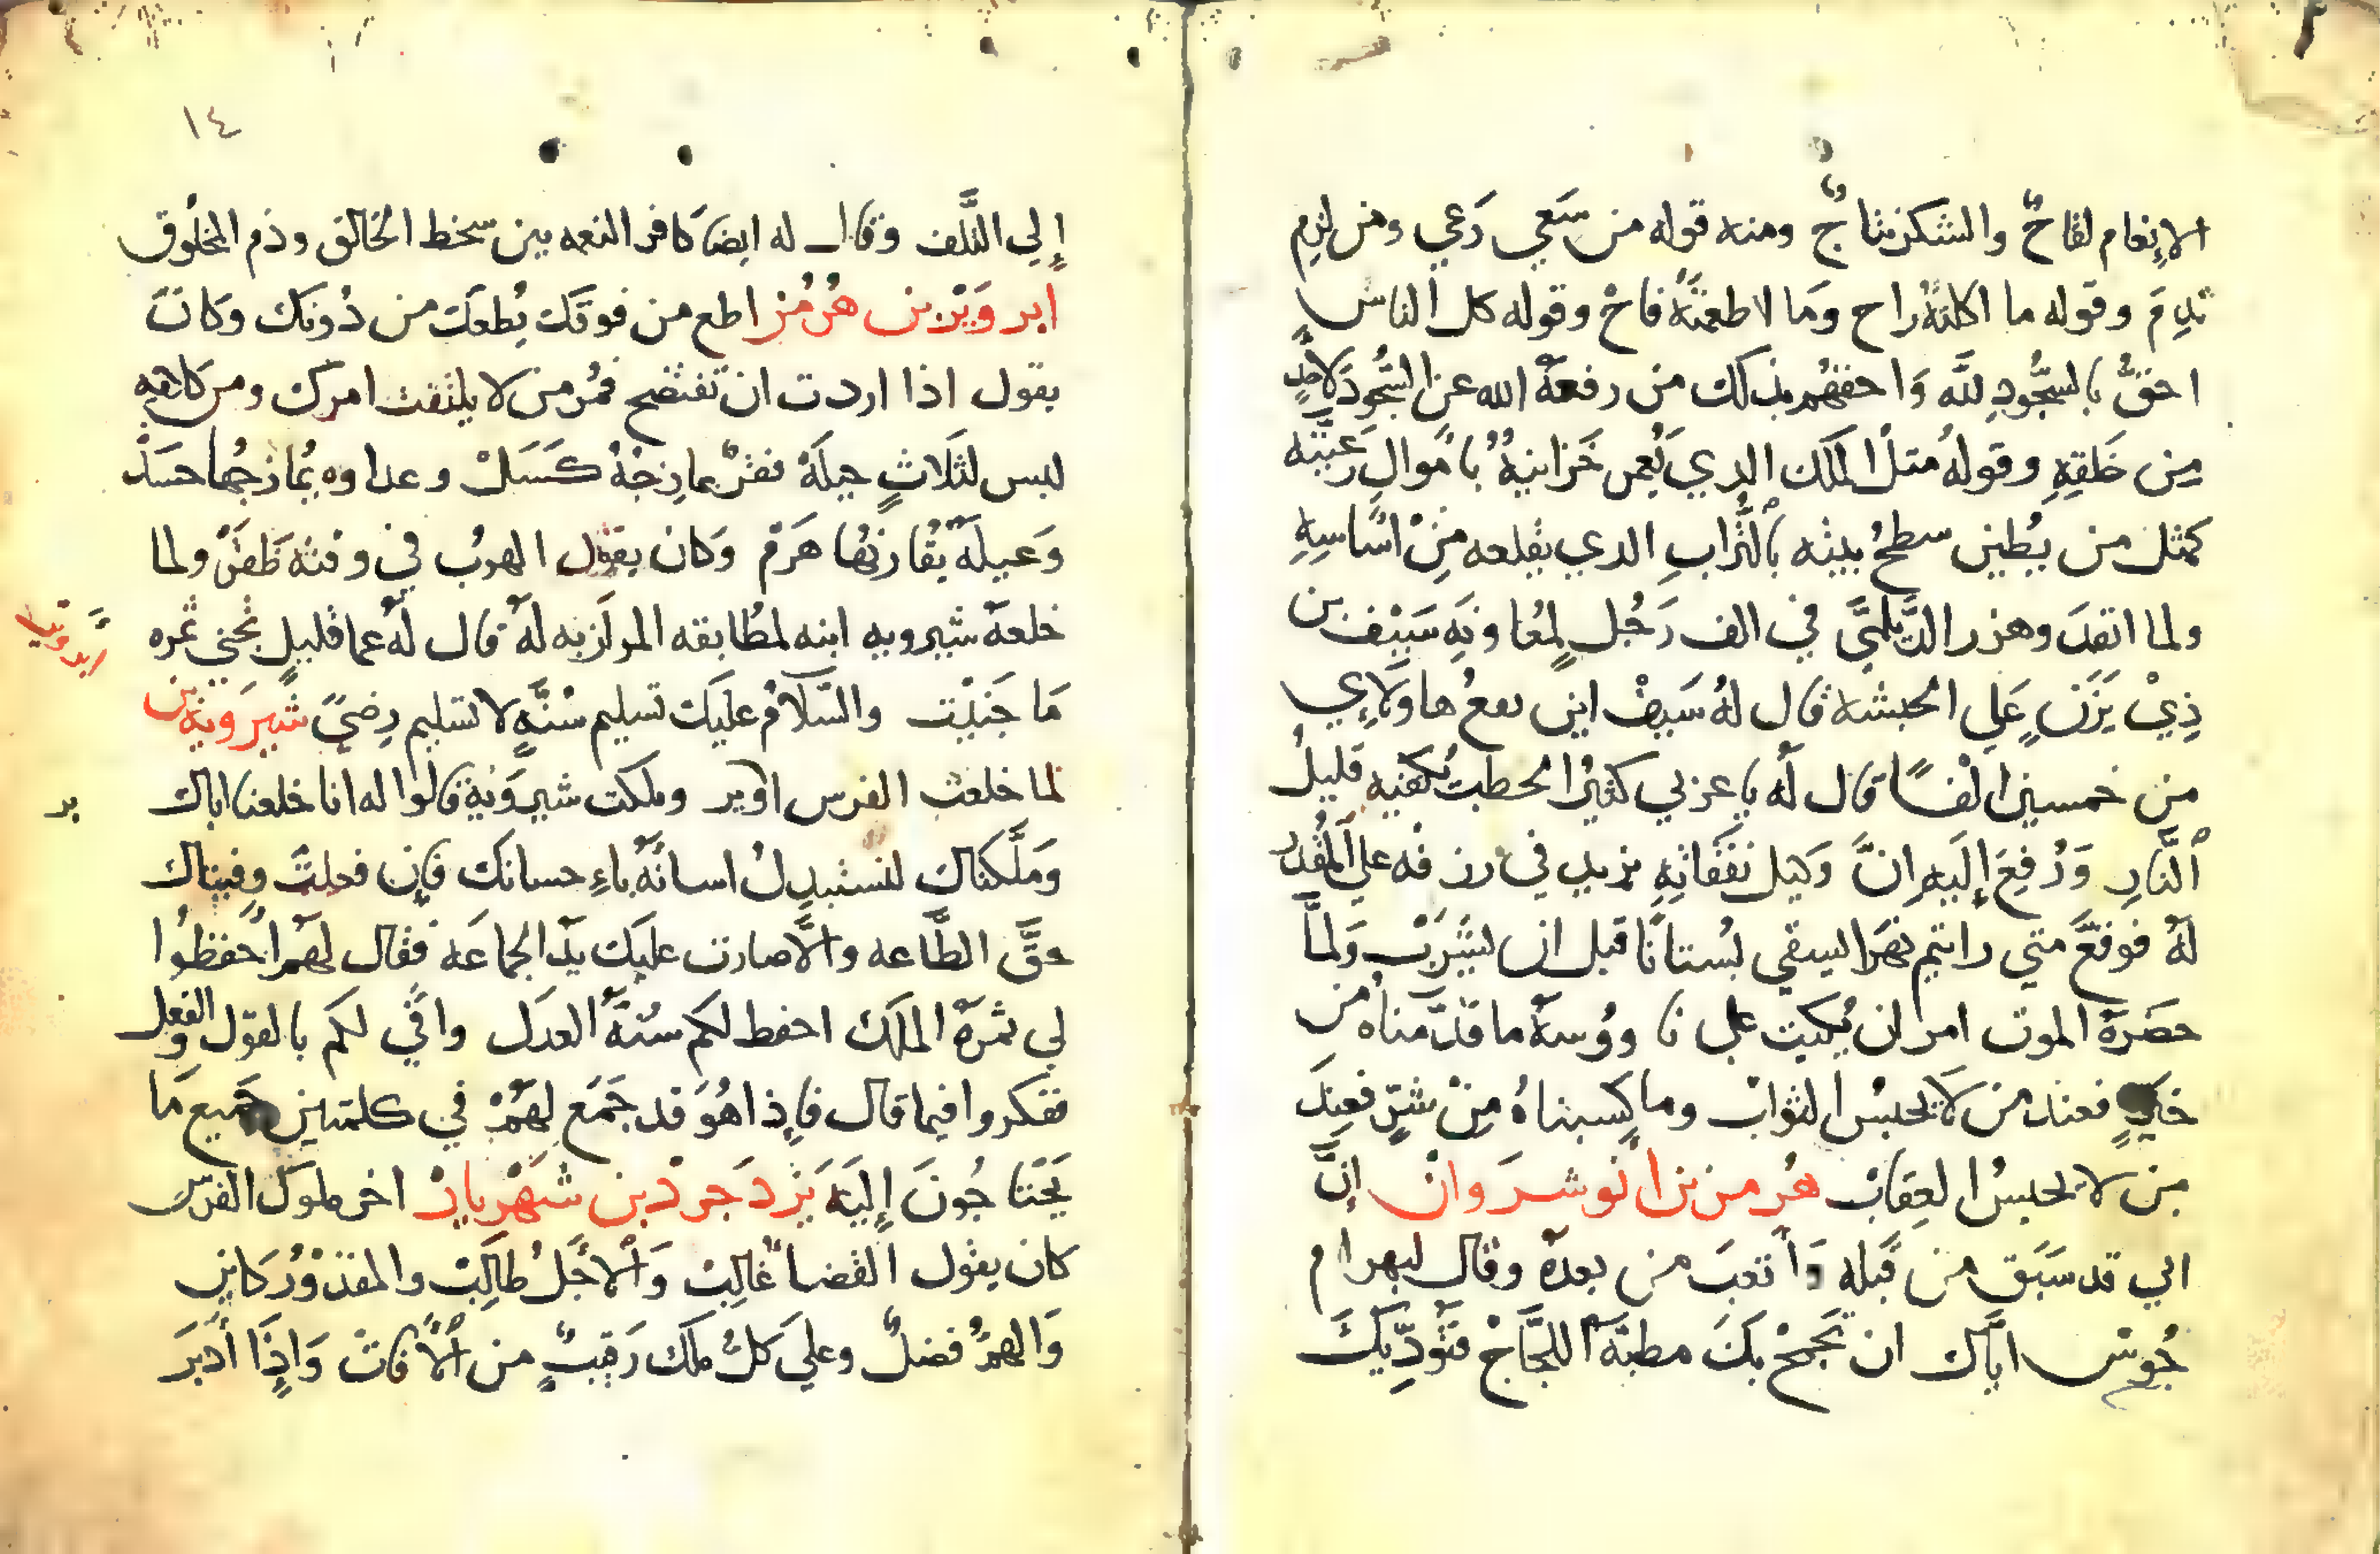 الاِنعام لقاحٌ والشكر نتاجٌ ومنه قوله من سَعي رَعي ومن لزم
ندِمَ وقوله ما اكلتهُ راح وَما لا طعمتَهُ فاحْ وقوله كل الناس
احقُّ بالسجُّودِ للَّه وَاحقهُم بذلك من رفعهُ الله عن السّجُودَ لاحدٍ
مِن خَلقِهِ وقولهُ مثلُ الملَك الدي يُعمر خَزاينهُ باموالِ رَعيَّته
كمثل من يُطيِن سطحُ بيته بالتُرابِ الدي يقلعه مِن اسَاسِهِ
ولما انقدَ وهزر الدَّيلميَّ في الف رَجُل لِمعُاونَةِ سَيْف بن
ذِيْ يَزَن عَلي الحبشه قال لهُ سَيفْ اين يقعُ هاولاَءِي
من خمسين الْفًا قال لهُ يا عربي كثيرُ الحطبَ يُكفيه قليلُ
النَّارِ وَرُفِعَ إليَهِ انَّ وَكيل نفَقَاتِهِ يزيد في رزقه علي المُقدر
لهُ فوقعَّ متي رايتم نهرًا يسقي بُستانًا قبل ان يشَرَبْ وَلمَّا
حضَرَهُ الموت امر ان يُكتب علي ناووُسهُ ما قدَّمناهُ من
خيرٍ فعند من لاَ يُخبسُ الثوابْ وما كسبناهُ مِنْ شرٍّ فعندَ
من لا يخبسُ العِقابْ هُرمز بن انوشروان انَّ
ابي قد سَبَق من قَبله وَاتعبَ من بعدهُ وقال لبهرام
جُوبش ايَّاك ان تجمحْ بكَ مطيّهُ اللجَاجْ فتؤدِّيكَ
١٤
إلي التَّلف وقال له ايضا كافر النعمه بين سخط الخالق وذم المخلوُق
ابرويز بن هُرمُز اطع من فوقك يُطعكَ من دُونك وكانَ
يقول اذا اردت ان تفتضح فمُر من لا يلتفت امرك ومن كلامه
ليس لثلاثٍ حيلَهْ فقرٌ يمازِجهُ كسَلْ وعداوه يُمازجُها حسَدْ
وَعيلهٌ يُقارنُها هَرَمْ وَكان يقول الهربُ في وقته ظفَرٌ ولما
خلعهُ شيرويه ابنه لمطُابقه المرازبه لهُ قال لهُ عما قليلٍ تجني ثمره
مَا جَنيْت والسّلامُ عليَك تسليم سنَّهٍ لا تسليم رِضيً شيروَيه بن
ابرويز
لما خلعت الفرس ابرويز وملكت شيروَيهْ قالوا له انا خلعنا اباك
وَملَّكناك لنستبدِلُ اسائَهُ باءِحسانك فإن فعلتَ وفيناك
حقَّ الطَّاعه والاَّ صارت عليَك يدَ الجماعَه فقال لهمُ احفظُوا
لي ثمرهُ الملَك احفط لكم سنُهُ العدَل وافي لكم بالقول والفعل
ففكروا فيما قال فإذا هُوَ قد جَمَع لهمْ في كلمتين جَميع مَا
يَحْتاجُونَ إليَه يَزدَجرد بن شهَرْيارْ اخر ملوكَ الفرُس
كان يقول القضا غالِبْ وَالاجَلُ طالِبْ والمقدوُر كاين
وَالهمُ فضلٌ وعليَ كلّ ملك رَقيبٌ من الآفاتْ وَإذَا أدبَرَ